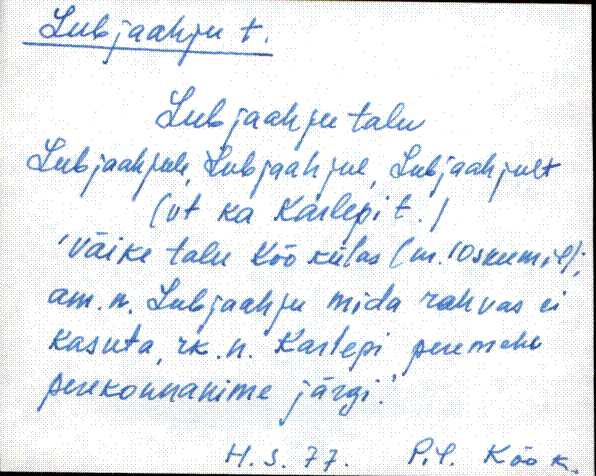 Lubjaahju t.
Lubjaahju talu
Lubjaahjule, Lubjaahjul, Lubjaahjult
(vt ka Karlepi t.)
'väike talu Kõo külas
am. n. Lubjaahju mida rahvas ei
kasuta, rk. n. Karlepi peremehe
perekonnanime järgi.'
H. S. 77. P.-J. Kõo k.